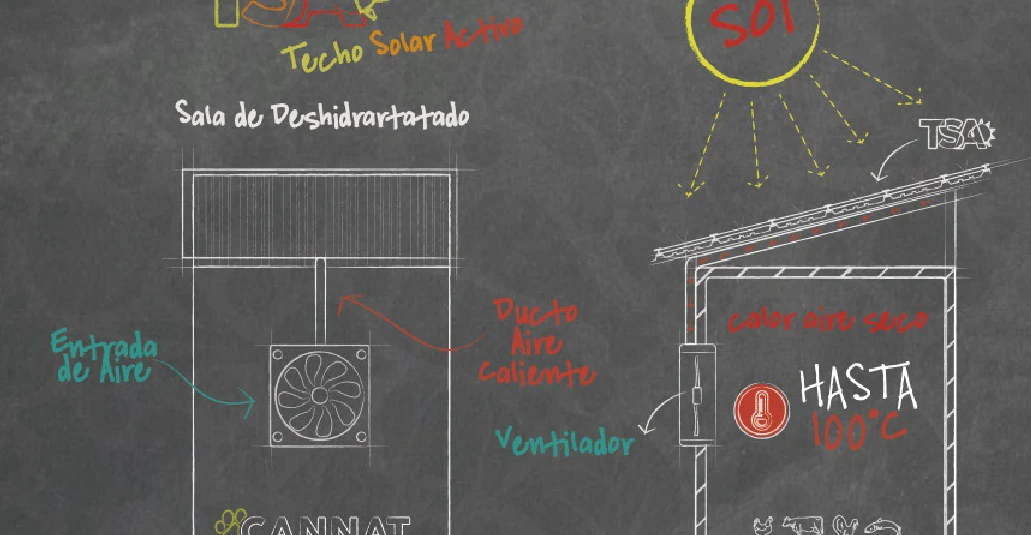 TSA
Techo Solar Activo
Sala de Deshidrartatado
Entrada
de Aire
Ducto
Aire
Caliente
CANNAT
Sol
TSA
calor aire seco
HASTA
100°C
Ventilador